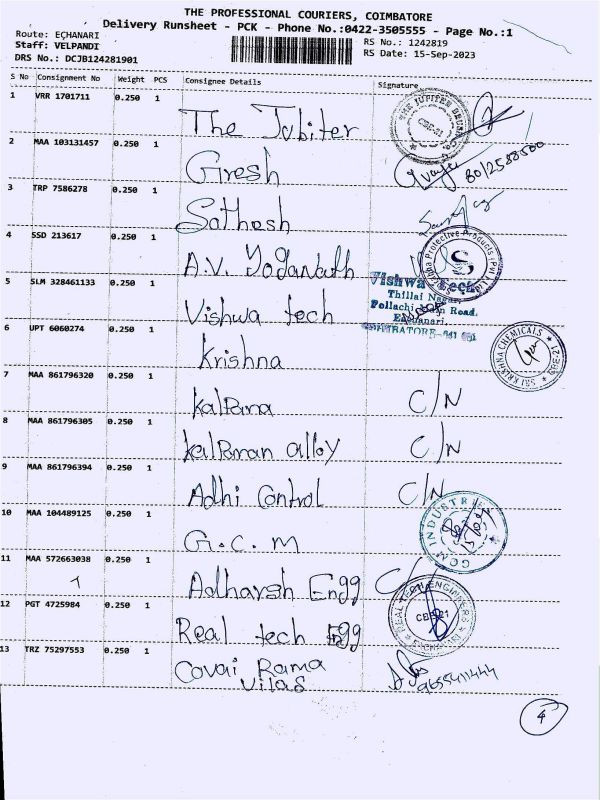 THE PROFESSIONAL COURIERS, COIMBATORE
Delivery Runsheet - PCK - Phone No.:0422-3505555 - Page No.:1
Route: EÇHANARI
Staff: VELPANDI
RS No.: 1242819
DRS No.: DCJB124281901
RS Date: 15-Sep-2023
S No Consignment No Weight PCS Consignee Details Signature
1 VRR 1701711 0.250 1 The Jubiter
THE JUPITER CBE-21
2 MAA 103131457 0.250 1 Giresh
3 TRP 7586278 0.250 1 Sathesh
4 SSD 213617 0.250 1 A.V. Yoganath
S
5 SLM 328461133 0.250 1 Vishwa tech
Vishwa Tech
Thillai Nagar,
Pollachi Main Road,
Eachanari,
COIMBATORE-641 021
6 UPT 6060274 0.250 1 Krishna
SRI KRISHNA CHEMICALS ★ CBE-21 ★
7 MAA 861796320 0.250 1 kalpana C/N
8 MAA 861796305 0.250 1 kalpanan alloy C/N
9 MAA 861796394 0.250 1 Adhi Control C/N
10 MAA 104489125 0.250 1 G.C.M
GCM INDUSTRIES
11 MAA 572663038 0.250 1 Adharsh Engg
12 PGT 4725984 0.250 1 Real tech Egg
REAL TECH ENGINEERS CBE-21
13 TRZ 75297553 0.250 1 Covai Rama
vilas
9655411444
4